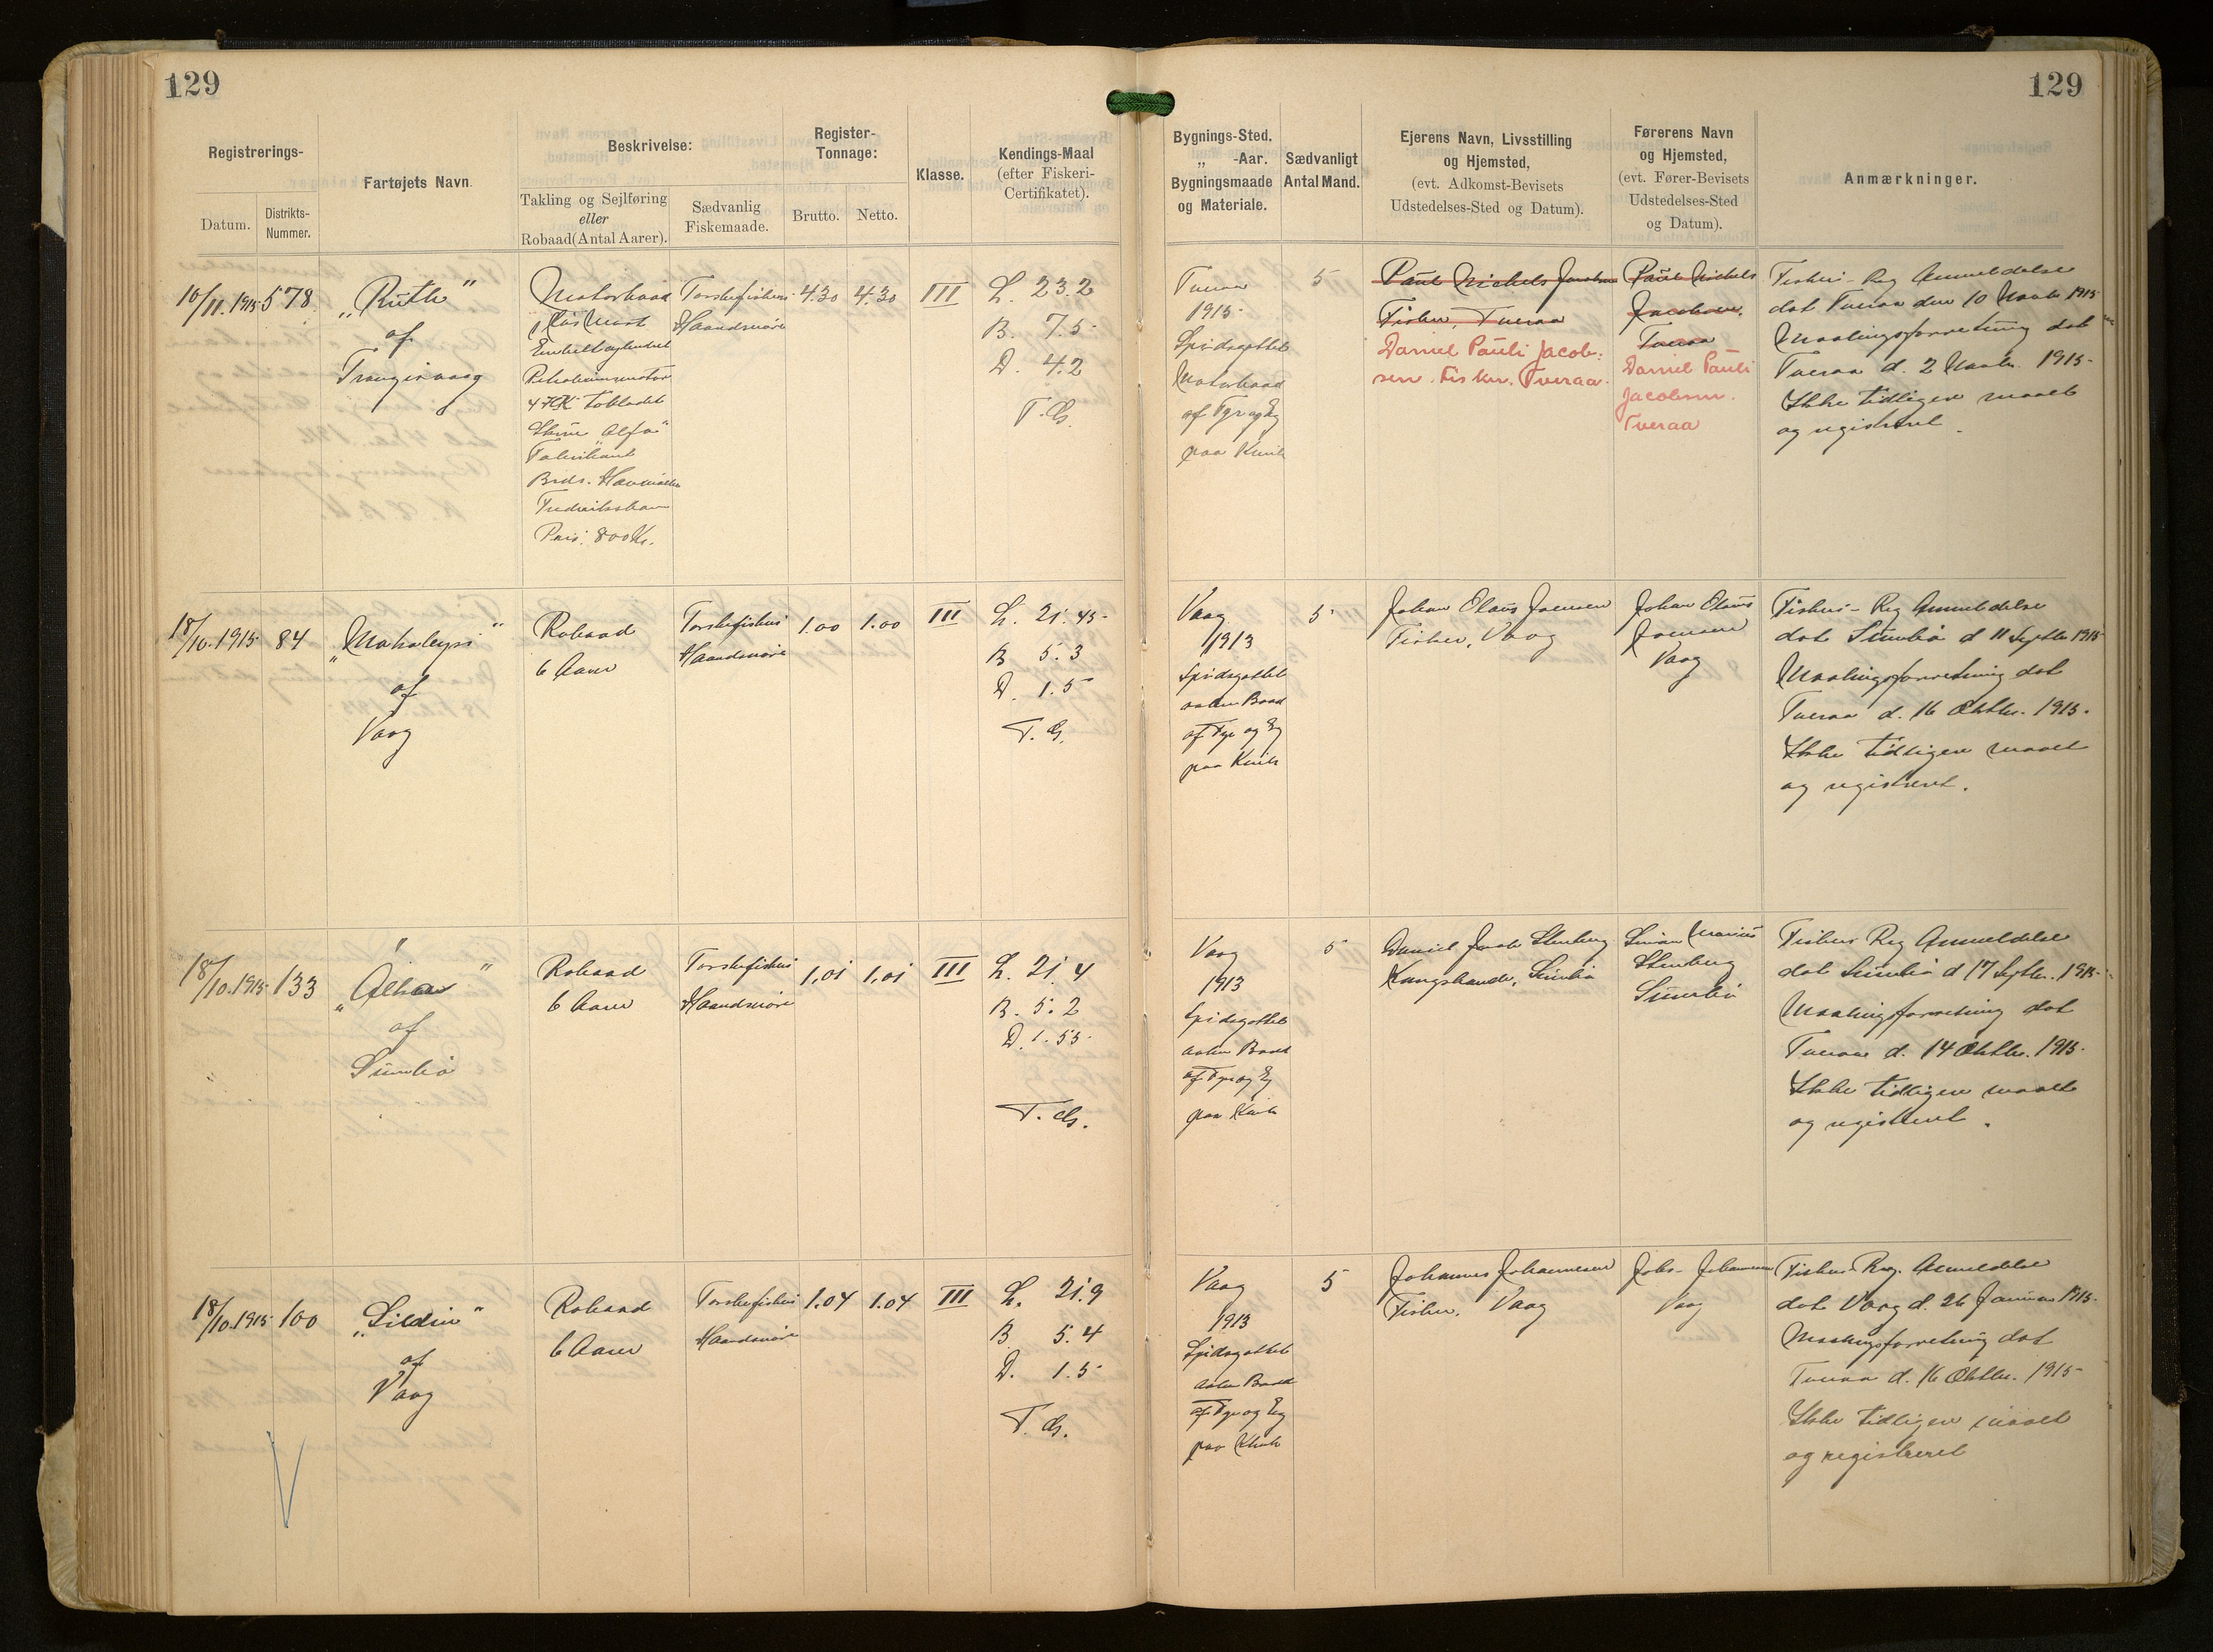 129
129
Registrerings-
Datum.
Distrikts-
Nummer.
Fartøjets Navn.
Beskrivelse:
Takling og Sejlføring
eller
Robaad (Antal Aarer).
Sædvanlig
Fiskemaade.
Register-
Tonnage:
Brutto.
Netto.
Klasse.
Kendings-Maal
(efter Fiskeri-
Certifikatet).
Bygnings-Sted.
„ -Aar.
Bygningsmaade
og Materiale.
Sædvanligt
Antal Mand.
Ejerens Navn, Livsstilling
og Hjemsted,
(evt. Adkomst-Bevisets
Udstedelses-Sted og Datum).
Førerens Navn
og Hjemsted,
(evt. Fører-Bevisets
Udstedelses-Sted
og Datum).
Anmærkninger.
10/11.1915
578
„Ruth"
af
Trangisvaag
Motorbaad
1 Løs Mast
Petroleumsmotor
4 HK tobladet
Skrue „Alfa"
Brdr. Houmøller
Fredrikshavn
Pris: 800 Kr.
Torskefiskeri
Haandsnøre
4.30
4.30
III
L. 23.2
B. 7.5
D. 4.2
T. G.
Tveraa
1915
Spidsgattet
Motorbaad
af Fyr og Eg
paa Kravel
5
Poul Michels Jacobsen
Fisker, Tveraa
Daniel Pauli Jacob-
sen. Fisker. Tveraa.
Poul Michels
Jacobsen.
Tveraa
Daniel Pauli
Jacobsen.
Tveraa
Fiskeri-Reg Anmeldelse
dat Tveraa den 10 Novbr 1915
Maalingsforretning dat
Tveraa d. 2 Novbr. 1915
Ikke tidligere maalt
og registreret.
18/10.1915
84
af
Vaag
Robaad
6 Aarer
Torskefiskeri
Haandsnøre
1.00
1.00
III
L. 21.45
B 5.3
D. 1.5
T. G.
Vaag
1913
Spidsgattet
aaben Baad
af Fyr og Eg
5
Johan Olaus Joensen
Fisker, Vaag
Johan Olaus
Joensen
Vaag
Fiskeri-Reg Anmeldelse
dat Sumbø d 11 Septbr 1915
Maalingsforretning dat
Tveraa d. 16 Oktbr. 1915.
Ikke tidligere maalt
og registreret.
18/10.1915
133
af
Sumbø
Robaad
6 Aarer
Torskefiskeri
Haandsnøre
1,01
1,01
III
L. 21.4
B. 5.2
D. 1.55
T. G.
Vaag
1913
Spidsgattet
aaben Baad
af Fyr og Eg
5
Daniel Jacob Stenberg
Kongsbonde, Sumbø
Simon Marius
Stenberg
Sumbø
Fiskeri Reg Anmeldelse
dat Sumbø d 17 Septbr. 1915
Maalingsforretning dat
Tveraa d. 14 Oktbr. 1915.
Ikke tidligere maalt
og registreret.
18/10.1915
100
„Sildin"
af
Vaag
Robaad
6 Aarer
Torskefiskeri
Haandsnøre
1.04
1.04
III
L. 21.9
B 5.4
D. 1.5
T. G.
Vaag
1913
Spidsgattet
aaben Baad
af Fyr og Eg
5
Johannes Johannesen
Fisker, Vaag
Johs. Johannesen
Vaag
Fiskeri-Reg. Anmeldelse
dat Vaag d. 26 Januar 1915.
Maalingsforretning dat
Tveraa d. 16 Oktbr. 1915
Ikke tidligere maalt
og registreret